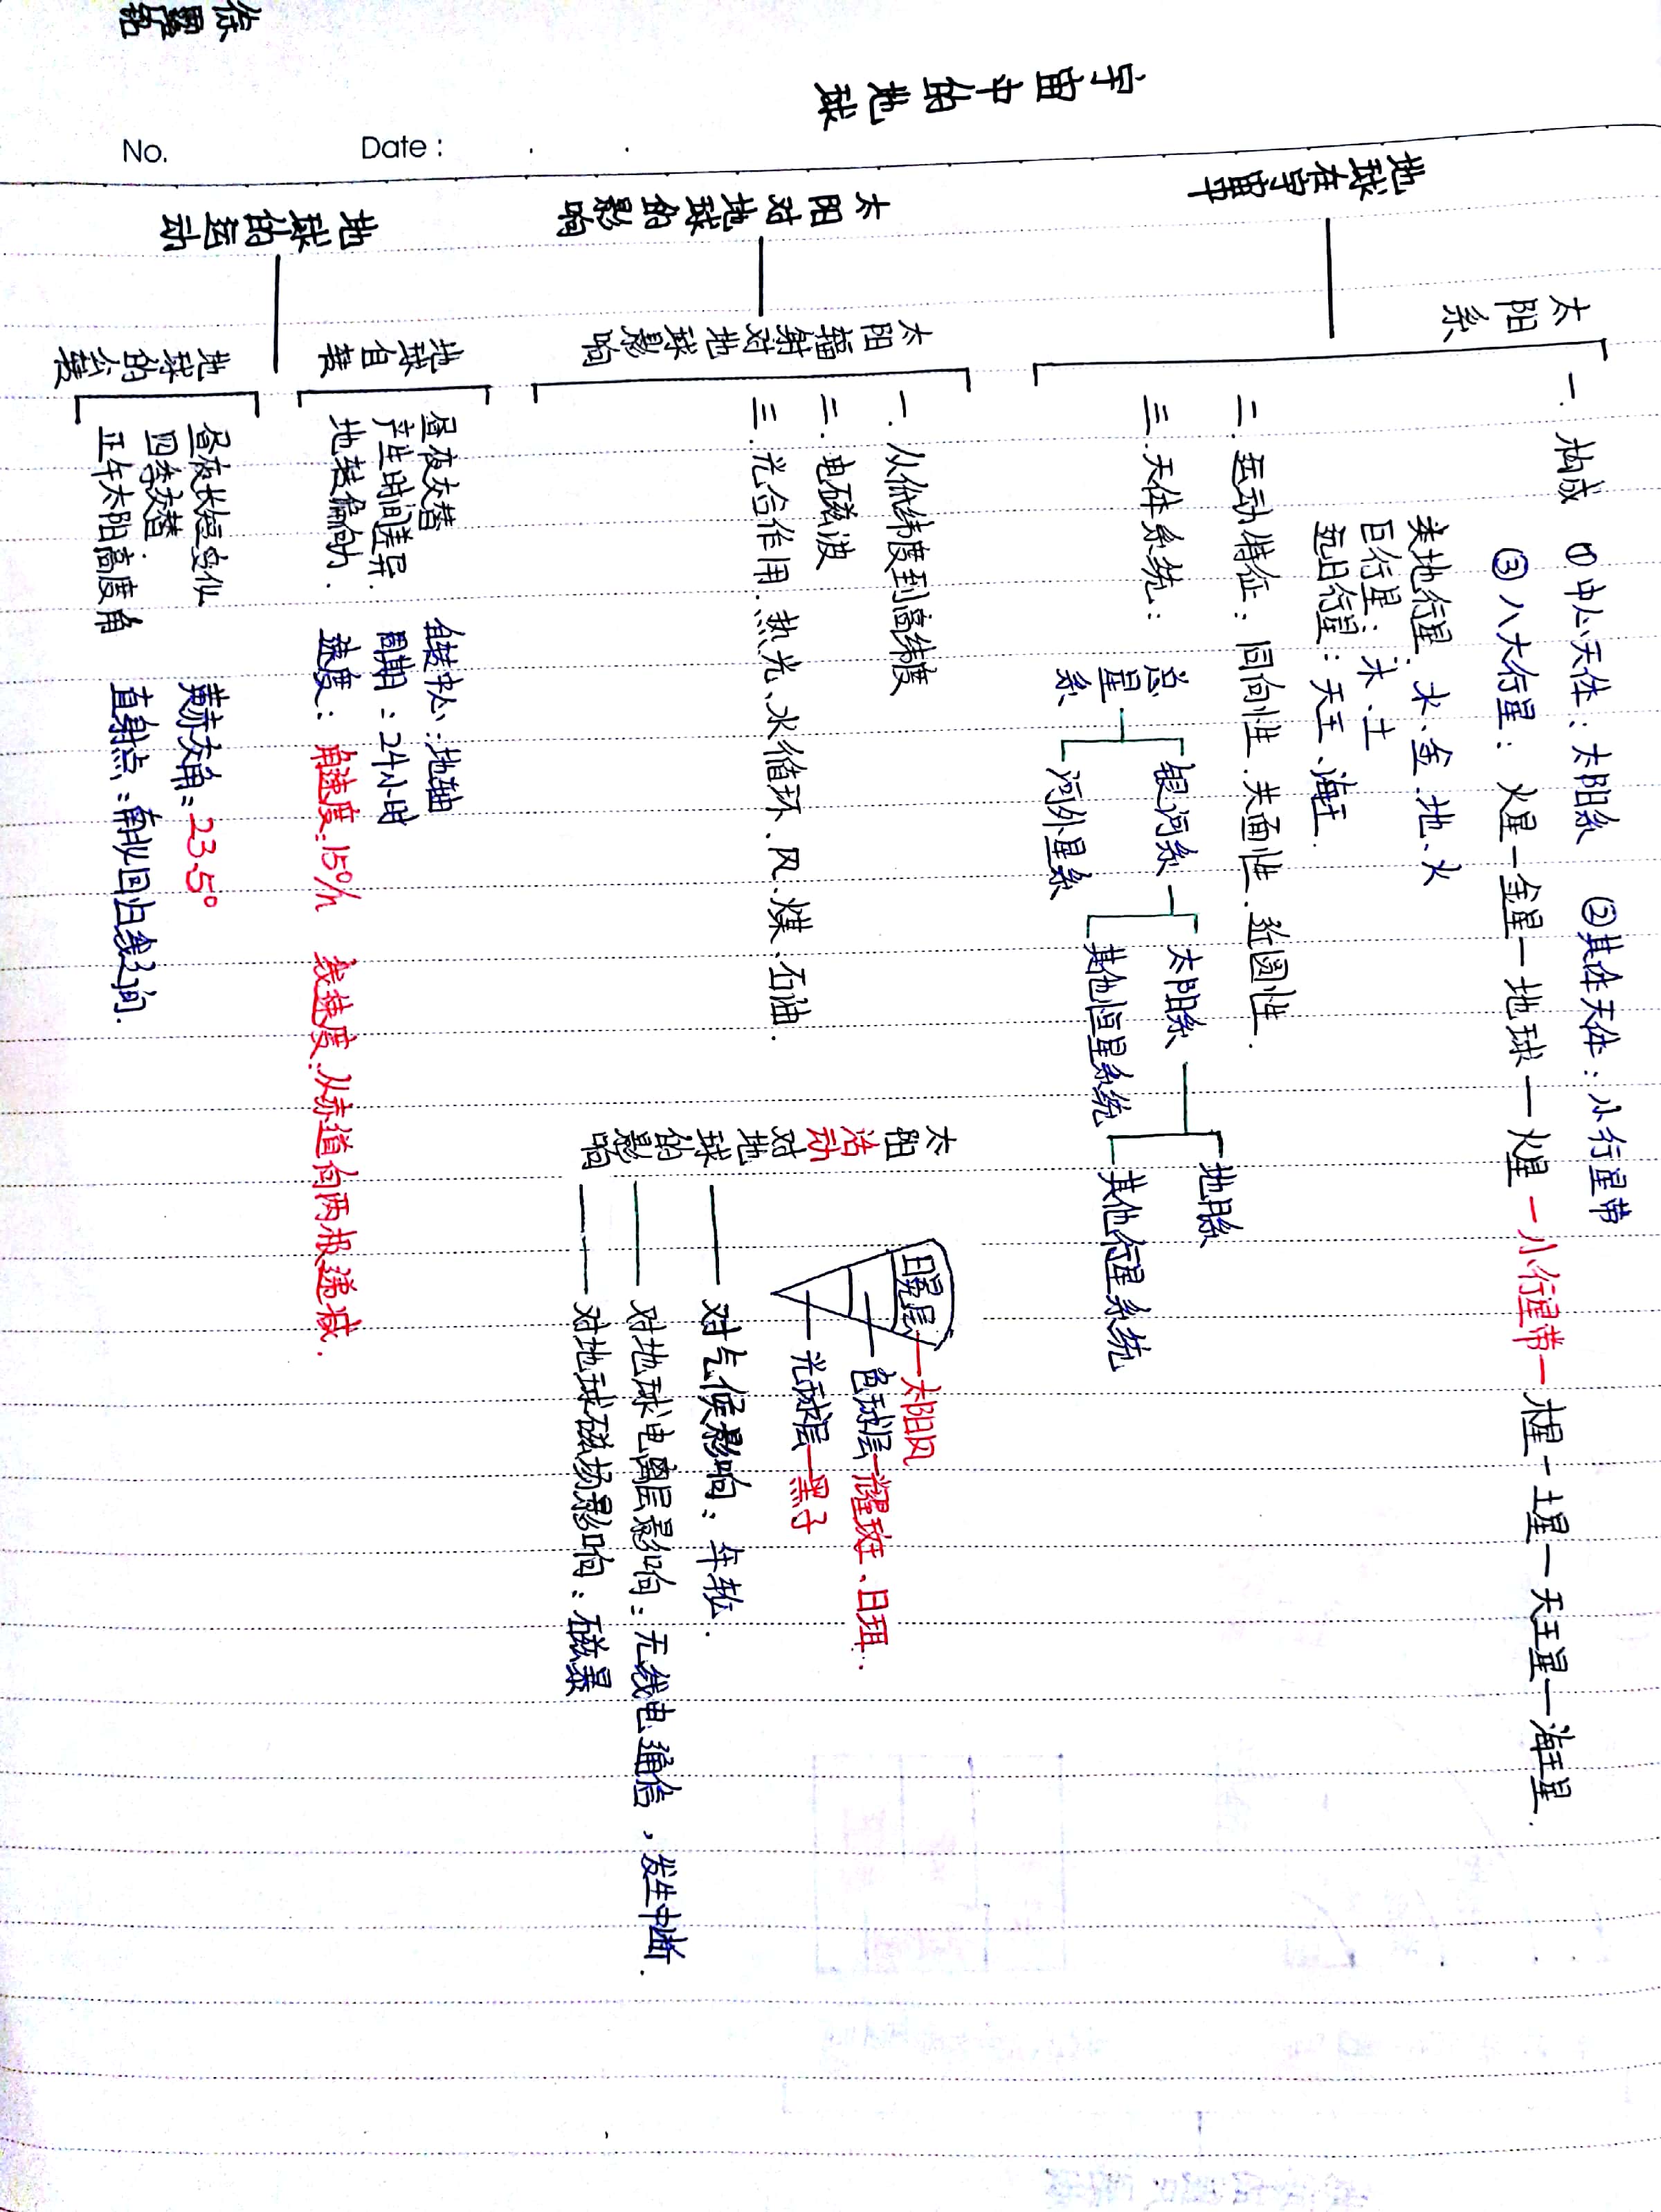 宇宙中的地球
No.
Date:
地球在宇宙中
太阳系
一.构成 ①中心天体:太阳系 ②其体天体:小行星带
③八大行星: 火星—金星—地球—火星—小行星带—木星—土星—天王星—海王星.
类地行星.水、金.地、火
巨行星:木、土
远日行星:天王、海王.
二.运动特征:同向性.共面性.近圆性.
三.天体系统:
总星系
银河系
河外星系
太阳系
其他恒星系统
地月系
其他行星系统
太阳对地球的影响
太阳辐射对地球影响
一.从低纬度到高纬度
二.电磁波
三.光合作用.热光、水循环.风.煤、石油.
太阳活动对地球的影响
日冕层—太阳风
色球层—耀斑、日珥.
光球层—黑子
对气候影响:年轮.
对地球电离层影响:无线电通信,发生中断.
对地球磁场影响:磁暴
地球的运动
地球自转
昼夜交替
产生时间差异.
地转偏向力.
自转中心:地轴
周期:24小时
速度:角速度:15°/h 线速度:从赤道向两极递减.
地球的公转
昼夜长短变化
四季交替.
正午太阳高度角
黄赤交角:23.5°
直射点:南北回归线之间.